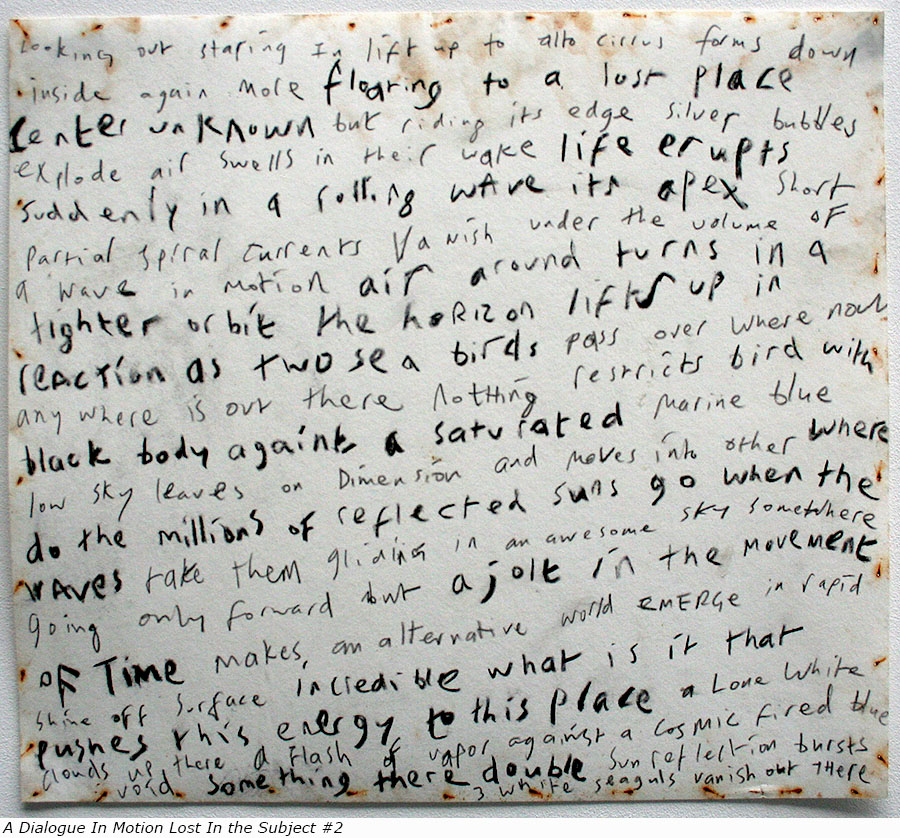 Looking out staring In lift up to alto cirrus forms down
inside again more floating to a lost place
Center unknown but riding its edge silver bubbles
explode air swells in their wake life erupts
suddenly in a rolling wave its apex short
partial spiral currents vanish under the volume OF
a wave in motion air around turns in a
tighter orbit the hoRizon lifts up in
reaction as two sea birds pass over where now
any where is out there nothing restricts bird with
black body againt a saturated marine blue
low sky leaves on Dimension and moves into other where
do the millions of reflected suns go when the
waves take them gliding in an awesome sky somewhere
going only forward but a jolt in the movement
OF Time makes, an alternative world EMERGE in rapid
shine off surface incredible what is it that
pushes this energy to this place a Lone White
clouds up there a Flash of vapor against a cosmic fired blue
void something there double sun reflection bursts
3 white seaguls vanish out THere
A Dialogue In Motion Lost In the Subject #2